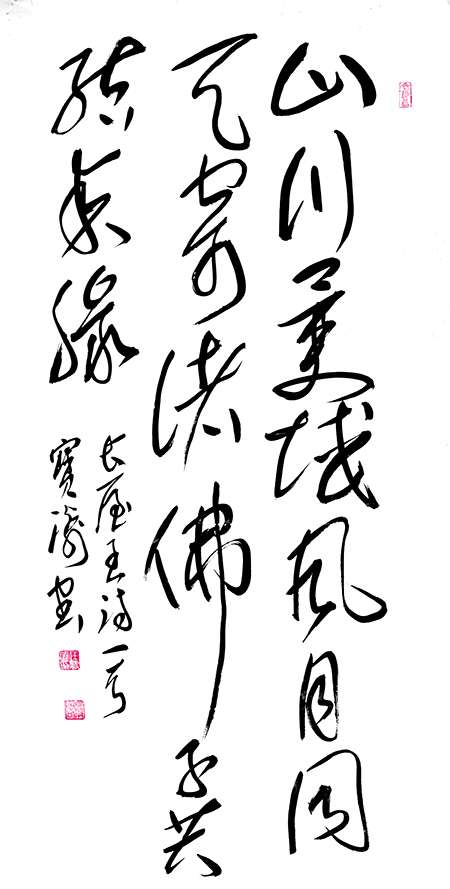 山川異域風月同
天寄諸佛子共
結來緣
長屋王詩一首
寶濤書